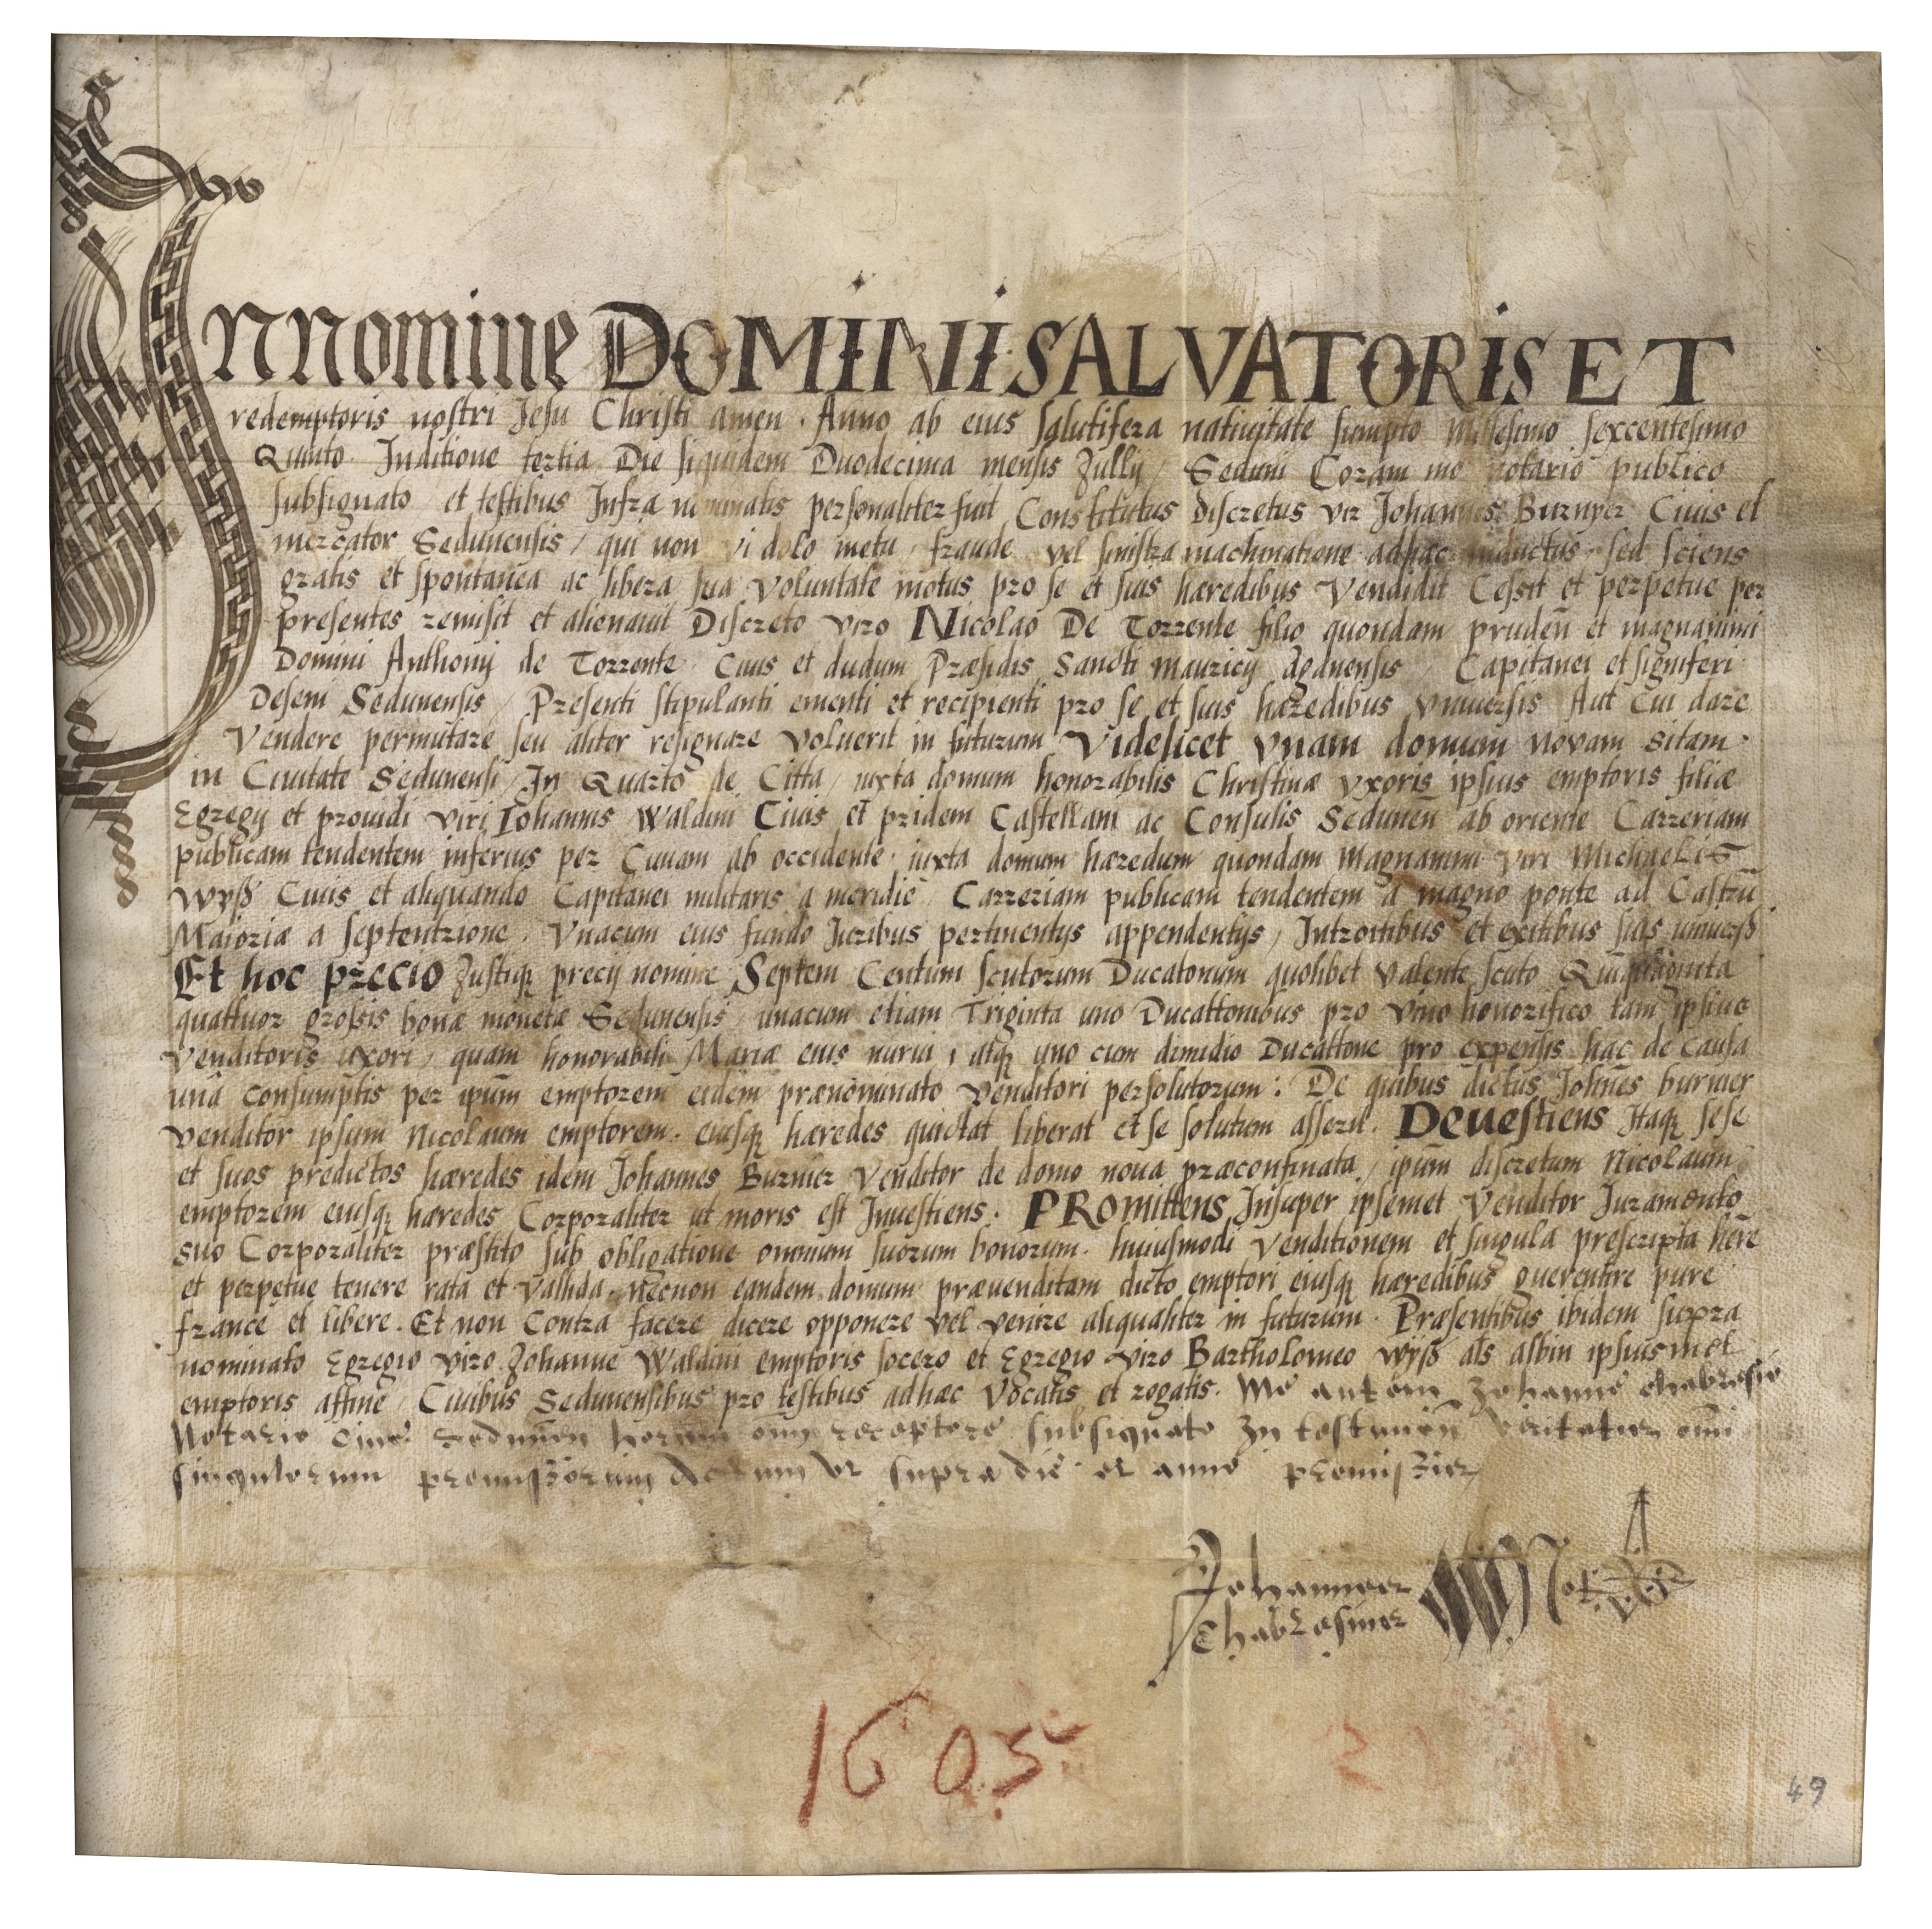 In nomine DOMINI SALVATORIS ET
redemptoris nostri Jesu Christi amen. Anno ab eius salutifera nativitate sumpto millesimo sexcentesimo
Quinto. Inditione tertia Die siquidem Duodecima mensis Jullij, Seduni Coram me notario publico
subsignato et testibus Infra nominatis personaliter fuit Constitutus discretus vir Johannes Burnyer Civis et
mercator Sedunensis, qui non vi dolo metu, fraude vel sinistra machinatione adhac inductus, sed sciens
gratis et spontanea ac libera sua voluntate motus pro se et suis hæredibus Vendidit Cessit et perpetue per
presentes remisit et alienavit Discreto viro Nicolao De Torrente filio quondam pruden̄ et magnanimi
Domini Anthonij de Torrente Civis et dudum Præsidis Sancti Mauricij Agdnensis, Capitanei et signiferi
Deseni Sedunensis, Presenti stipulanti ementi et recipienti pro se et suis hæredibus vniuersis Aut Cui dare
Vendere permutare seu aliter resignare voluerit in futurum, Videlicet vnam domum novam sitam
in Ciuitate Sedunensi, In Quarto de Citta, iuxta domum honorabilis Christinæ vxoris ipsius emptoris filiæ
Egregij et providi viri Iohannis Waldini Civis et pridem Castellani ac Consulis Sedunen̄ ab oriente Carreriam
publicam tendentem inferius per Civam ab occidente, iuxta domum hæredum quondam magnanimi viri Michaelis
Wyß Civis et aliquando Capitanei militaris a meridie, Carreriam publicam tendentem a magno ponte ad Castrū
Maioriæ a septentrione. Vnacum eius fundo Juribus pertinentijs appendentijs, Introitibus et exitibus suis universß
Et hoc precio Justiqȝ precij nomine Septem Centum scutorum Ducatonum quolibet valente scuto Quinquaginta
quattuor grossis bonæ monetæ Sedunensis, unacum etiam Triginta uno Ducattonibus pro vino honorifico tam ipsius
Venditoris uxori, quam honorabili Mariæ eius nurui, atqȝ uno cum dimidio Ducattone pro expensis hac de causa
unà consumptis per ipsū̄m emptorem eidem prænominato Venditori persolutorum: De quibus dictus John̄es burnier
Venditor ipsum Nicolaum emptorem, eiusqȝ hæredes quictat liberat et se solutum asserit. Devestiens Itaqȝ sese
et suos predictos hæredes idem Johannes Burnier Venditor de domo nova præconfinata, ipūm discretum Nicolaum
emptorem eiusqȝ hæredes Corporaliter ut moris est Investiens. PROmittens Insuper ipsemet Venditor Juramento
suo Corporaliter præstito sub obligatione omnium suorum bonorum, huiusmodi Venditionem et singula prescripta hēre
et perpetue tenere rata et Vallida, Necnon eandem domum prævenditam dicto emptori eiusqȝ hæredibus guerentire pure
france et libere. Et non Contra facere dicere opponere vel venire aliqualiter in futurum. Præsentibus ibidem supra
nominato Egregio viro Johanne Waldini emptoris socero et Egregio viro Bartholomeo Wyß als albin ipsiusmet
emptoris affine, Civibus Sedunensibus pro testibus adhæc Vocatis et rogatis. Me autem Johanne chabresie
Notario Cive Sedunen̄ horum omn̄ receptore subsignato In testimon̄ veritatis omn̄i
singulorum premissorum Actum ut supra die et anno premissis
Johannes
Chabresius Not.
1605
2
49